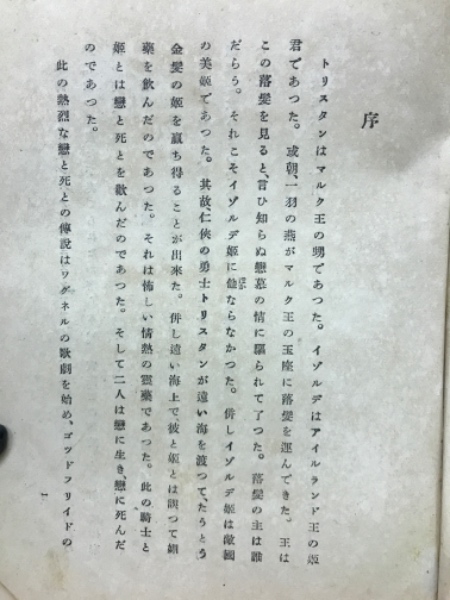 序
トリスタンはマルク王の甥であつた。イゾルデはアイルランド王の姫
君であつた。或朝、一羽の燕がマルク王の玉座に落髪を運んできた。王は
この落髪を見ると、言ひ知らぬ戀慕の情に驅られて了つた。落髪の主は誰
だらう。それこそイゾルデ姫に他ならなかつた。併しイゾルデ姫は敵國
の美姫であつた。其故、仁俠の勇士トリスタンが遠い海を渡つて、たうとう
金髪の姫を贏ち得ることが出來た。併し遠い海上で、彼と姫とは誤つて媚
藥を飮んだのであつた。それは怖しい情熱の靈藥であつた。此の騎士と
姫とは戀と死とを飮んだのであつた。そして二人は戀に生き、戀に死んだ
のであつた。
此の熱烈な戀と死との傳說はワグネルの歌劇を始め、ゴツドフリイドの
1